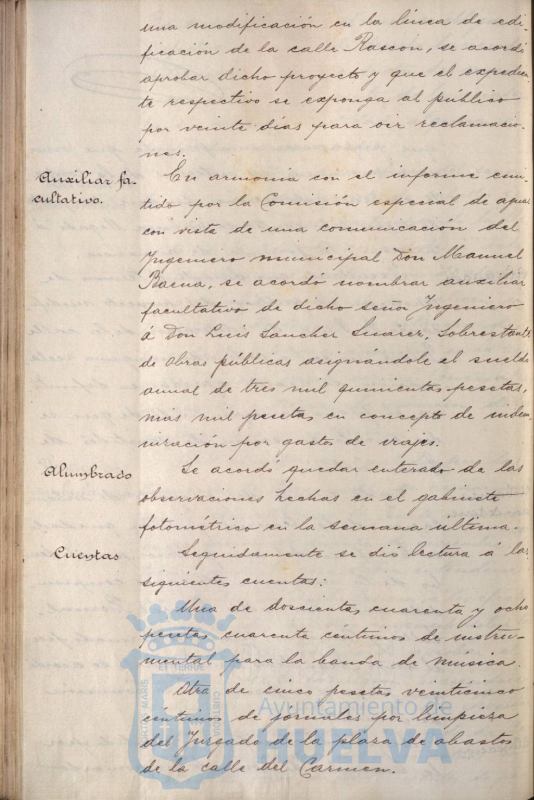 una modificación en la línea de edi-
ficación de la calle Rascón, se acordó
aprobar dicho proyecto y que el expedien-
te respectivo se exponga al público
por veinte días para oir reclamacio-
nes.
Auxiliar fa-
cultativo.
En armonia con el informe emi-
tido por la Comisión especial de aguas
con vista de una comunicación del
Ingeniero municipal Don Manuel
Baena, se acordó nombrar auxiliar
facultativo de dicho señor Ingeniero
á Don Luis Sanchez Suarez, Sobrestante
de obras públicas asignándole el sueldo
anual de tres mil quinientas pesetas,
más mil pesetas en concepto de indem-
nización por gastos de viajes.
Alumbrado
Se acordó quedar enterado de las
observaciones hechas en el gabinete
fotométrico en la semana última.
Cuentas
Seguidamente se dió lectura á las
siguientes cuentas:
Una de doscientas cuarenta y ocho
pesetas cuarenta céntimos de instru-
mental para la banda de música.
Otra de cinco pesetas veinticinco
céntimos de jornales por limpieza
del Juzgado de la plaza de abastos
de la calle del Carmen.
Ayuntamiento de
HUELVA